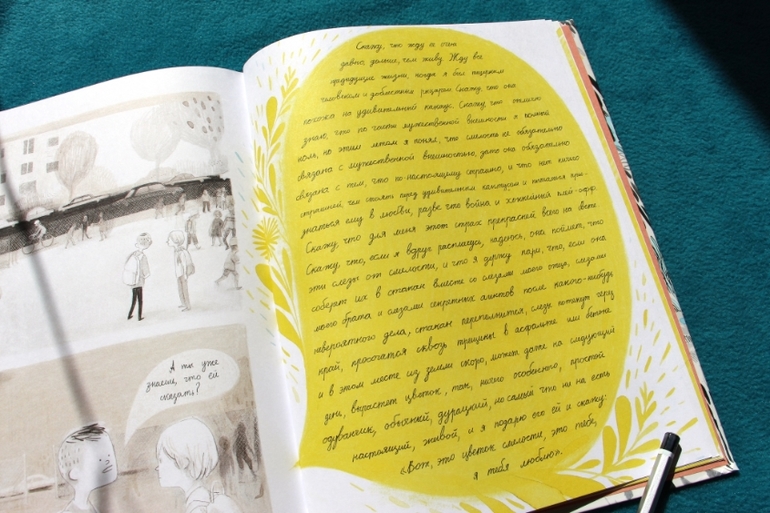 А ты уже
знаешь, что ей
сказать?
Скажу, что жду её очень
давно, дольше, чем живу. Жду все
предыдущие жизни, когда я был первым
человеком и доблестным рыцарем. Скажу, что она
похожа на удивительный каньон. Скажу, что отлично
знаю, что по части мужественной внешности я полный
ноль, но этим летом я понял, что смелость не обязательно
связана с мужественной внешностью, зато она обязательно
связана с тем, что по-настоящему страшно, и что нет ничего
страшней, чем стоять перед удивительным каньоном и пытаться при-
знаться ему в любви, разве что война и хоккейный плей-офф.
Скажу, что для меня этот страх прекрасней всего на свете.
Скажу, что, если я вдруг расплачусь, надеюсь, она поймёт, что
эти слёзы от смелости, и что я держу пари, что, если она
соберёт их в стакан вместе со слезами моего отца, слезами
моего брата и слезами секретных агентов после какого-нибудь
невероятного дела, стакан переполнится, слёзы потекут через
край, просочатся сквозь трещины в асфальте или бетоне
и в этом месте из земли скоро, может даже на следующий
день, вырастет цветок, так, ничего особенного, простой
одуванчик, обычный, дурацкий, но самый что ни на есть
настоящий, живой, и я подарю его ей и скажу:
«Вот, это цветок смелости, это тебе,
я тебя люблю».